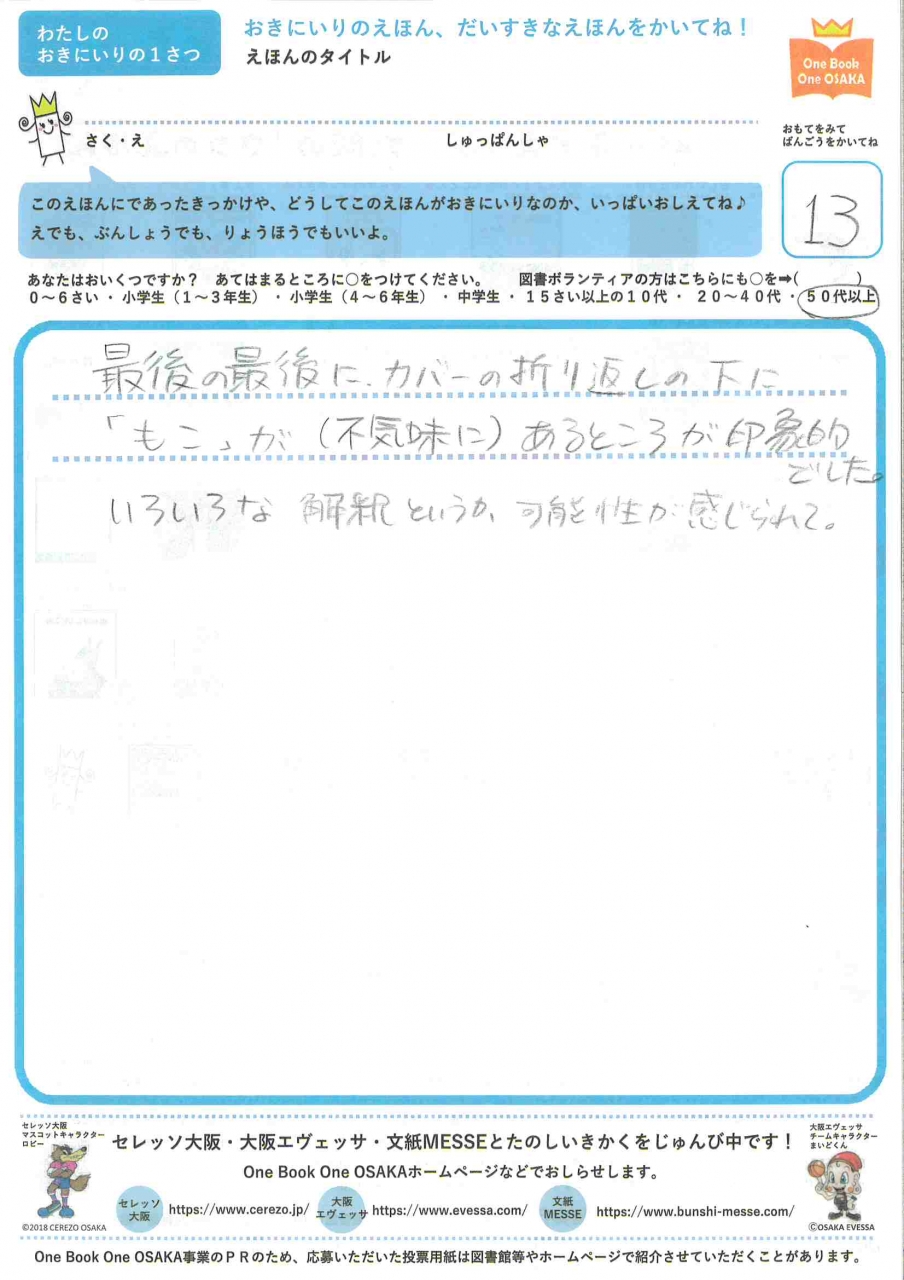 わたしの
おきにいりの１さつ
おきにいりのえほん、だいすきなえほんをかいてね！
えほんのタイトル
One Book
One OSAKA
さく・え
しゅっぱんしゃ
おもてをみて
ばんごうをかいてね
このえほんにであったきっかけや、どうしてこのえほんがおきにいりなのか、いっぱいおしえてね♪
えでも、ぶんしょうでも、りょうほうでもいいよ。
13
あなたはおいくつですか？　あてはまるところに○をつけてください。　　図書ボランティアの方はこちらにも○を➡(　　　　)
０～６さい ・ 小学生（１～３年生） ・ 小学生（４～６年生） ・ 中学生 ・ １５さい以上の１０代 ・ ２０～４０代 ・ ５０代以上
最後の最後に、カバーの折り返しの下に
「もこ」が（不気味に）あるところが印象的
でした。
いろいろな 解釈というか、可能性が感じられて。
セレッソ大阪
マスコットキャラクター
ロビー
セレッソ大阪・大阪エヴェッサ・文紙MESSEとたのしいきかくをじゅんび中です！
One Book One OSAKAホームページなどでおしらせします。
大阪エヴェッサ
チームキャラクター
まいどくん
セレッソ
大阪
https://www.cerezo.jp/
大阪
エヴェッサ
https://www.evessa.com/
文紙
MESSE
https://www.bunshi-messe.com/
©2018 CEREZO OSAKA
©OSAKA EVESSA
One Book One OSAKA事業のＰＲのため、応募いただいた投票用紙は図書館等やホームページで紹介させていただくことがあります。